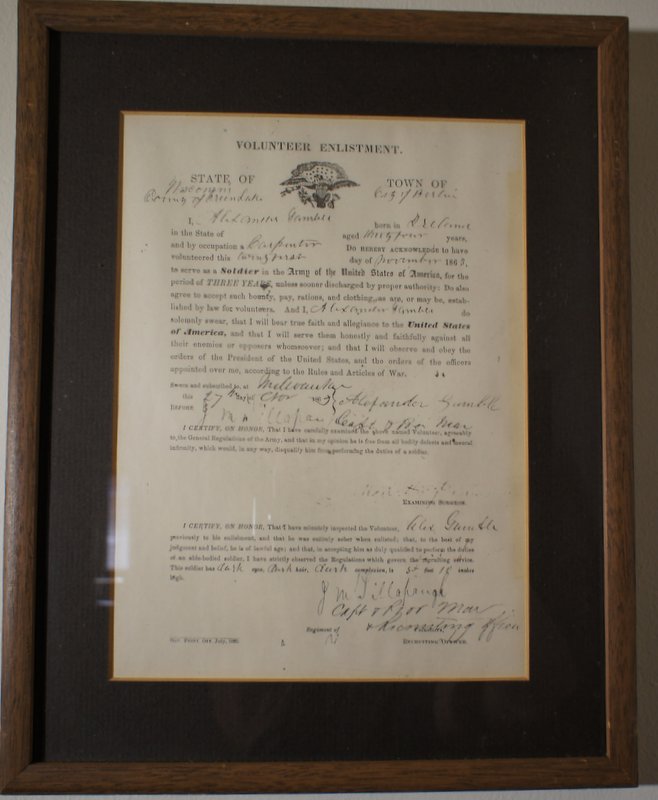 VOLUNTEER ENLISTMENT.
STATE OF TOWN OF
Wisconsin City of Berlin
County of
I, Alexander Gamble born in Ireland
in the State of aged thirty four years,
and by occupation a Carpenter Do HEREBY ACKNOWLEDGE to have
volunteered this twenty first day of November 1863,
to serve as a Soldier in the Army of the United States of America, for the
period of THREE YEARS, unless sooner discharged by proper authority: Do also
agree to accept such bounty, pay, rations, and clothing, as are, or may be, estab-
lished by law for volunteers. And I, Alexander Gamble do
solemnly swear, that I will bear true faith and allegiance to the United States
of America, and that I will serve them honestly and faithfully against all
their enemies or opposers whomsoever; and that I will observe and obey the
orders of the President of the United States, and the orders of the officers
appointed over me, according to the Rules and Articles of War.
Sworn and subscribed to, at Milwaukee
this 27 day of Nov 1863 Alexander Gamble
BEFORE J M Capt & Pro Mar
I CERTIFY, ON HONOR, That I have carefully examined the above named Volunteer, agreeably
to the General Regulations of the Army, and that in my opinion he is free from all bodily defects and mental
infirmity, which would, in any way, disqualify him from performing the duties of a soldier.
EXAMINING SURGEON.
I CERTIFY, ON HONOR, That I have minutely inspected the Volunteer, Alex Gamble
previously to his enlistment, and that he was entirely sober when enlisted; that, to the best of my
judgment and belief, he is of lawful age; and that, in accepting him as duly qualified to perform the duties
of an able-bodied soldier, I have strictly observed the Regulations which govern the recruiting service.
This soldier has dark eyes, dark hair, dark complexion, is 5 feet inches
high.
J M
Capt & Pro Mar
& Recruiting Officer
Regiment of Volunteers,
RECRUITING OFFICER.